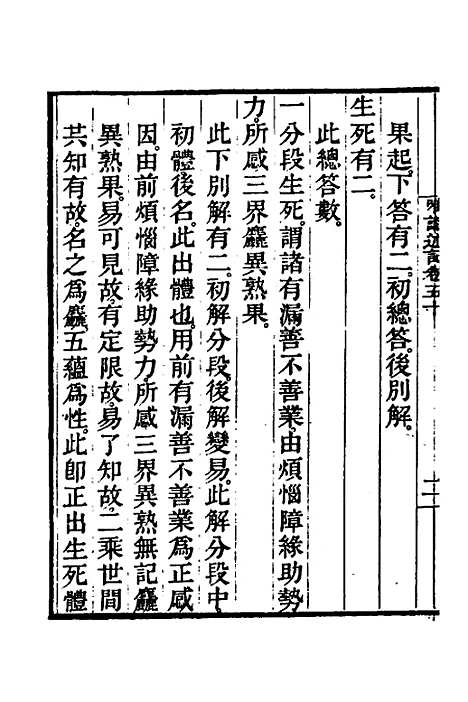 果起。下答有二。初總答。後別解。
生死有二。
此總答數。
一分段生死。謂諸有漏善不善業。由煩惱障緣助勢
力。所感三界麤異熟果。
此下別解有二。初解分段。後解變易。此解分段中
初體後名。此出體也。用前有漏善不善業為正感
因。由前煩惱障緣助勢力所感三界異熟無記麤
異熟果。易可見故。有定限故。易了知故。二乘世間
共知有故。名之為麤。五蘊為性。此即正出生死體